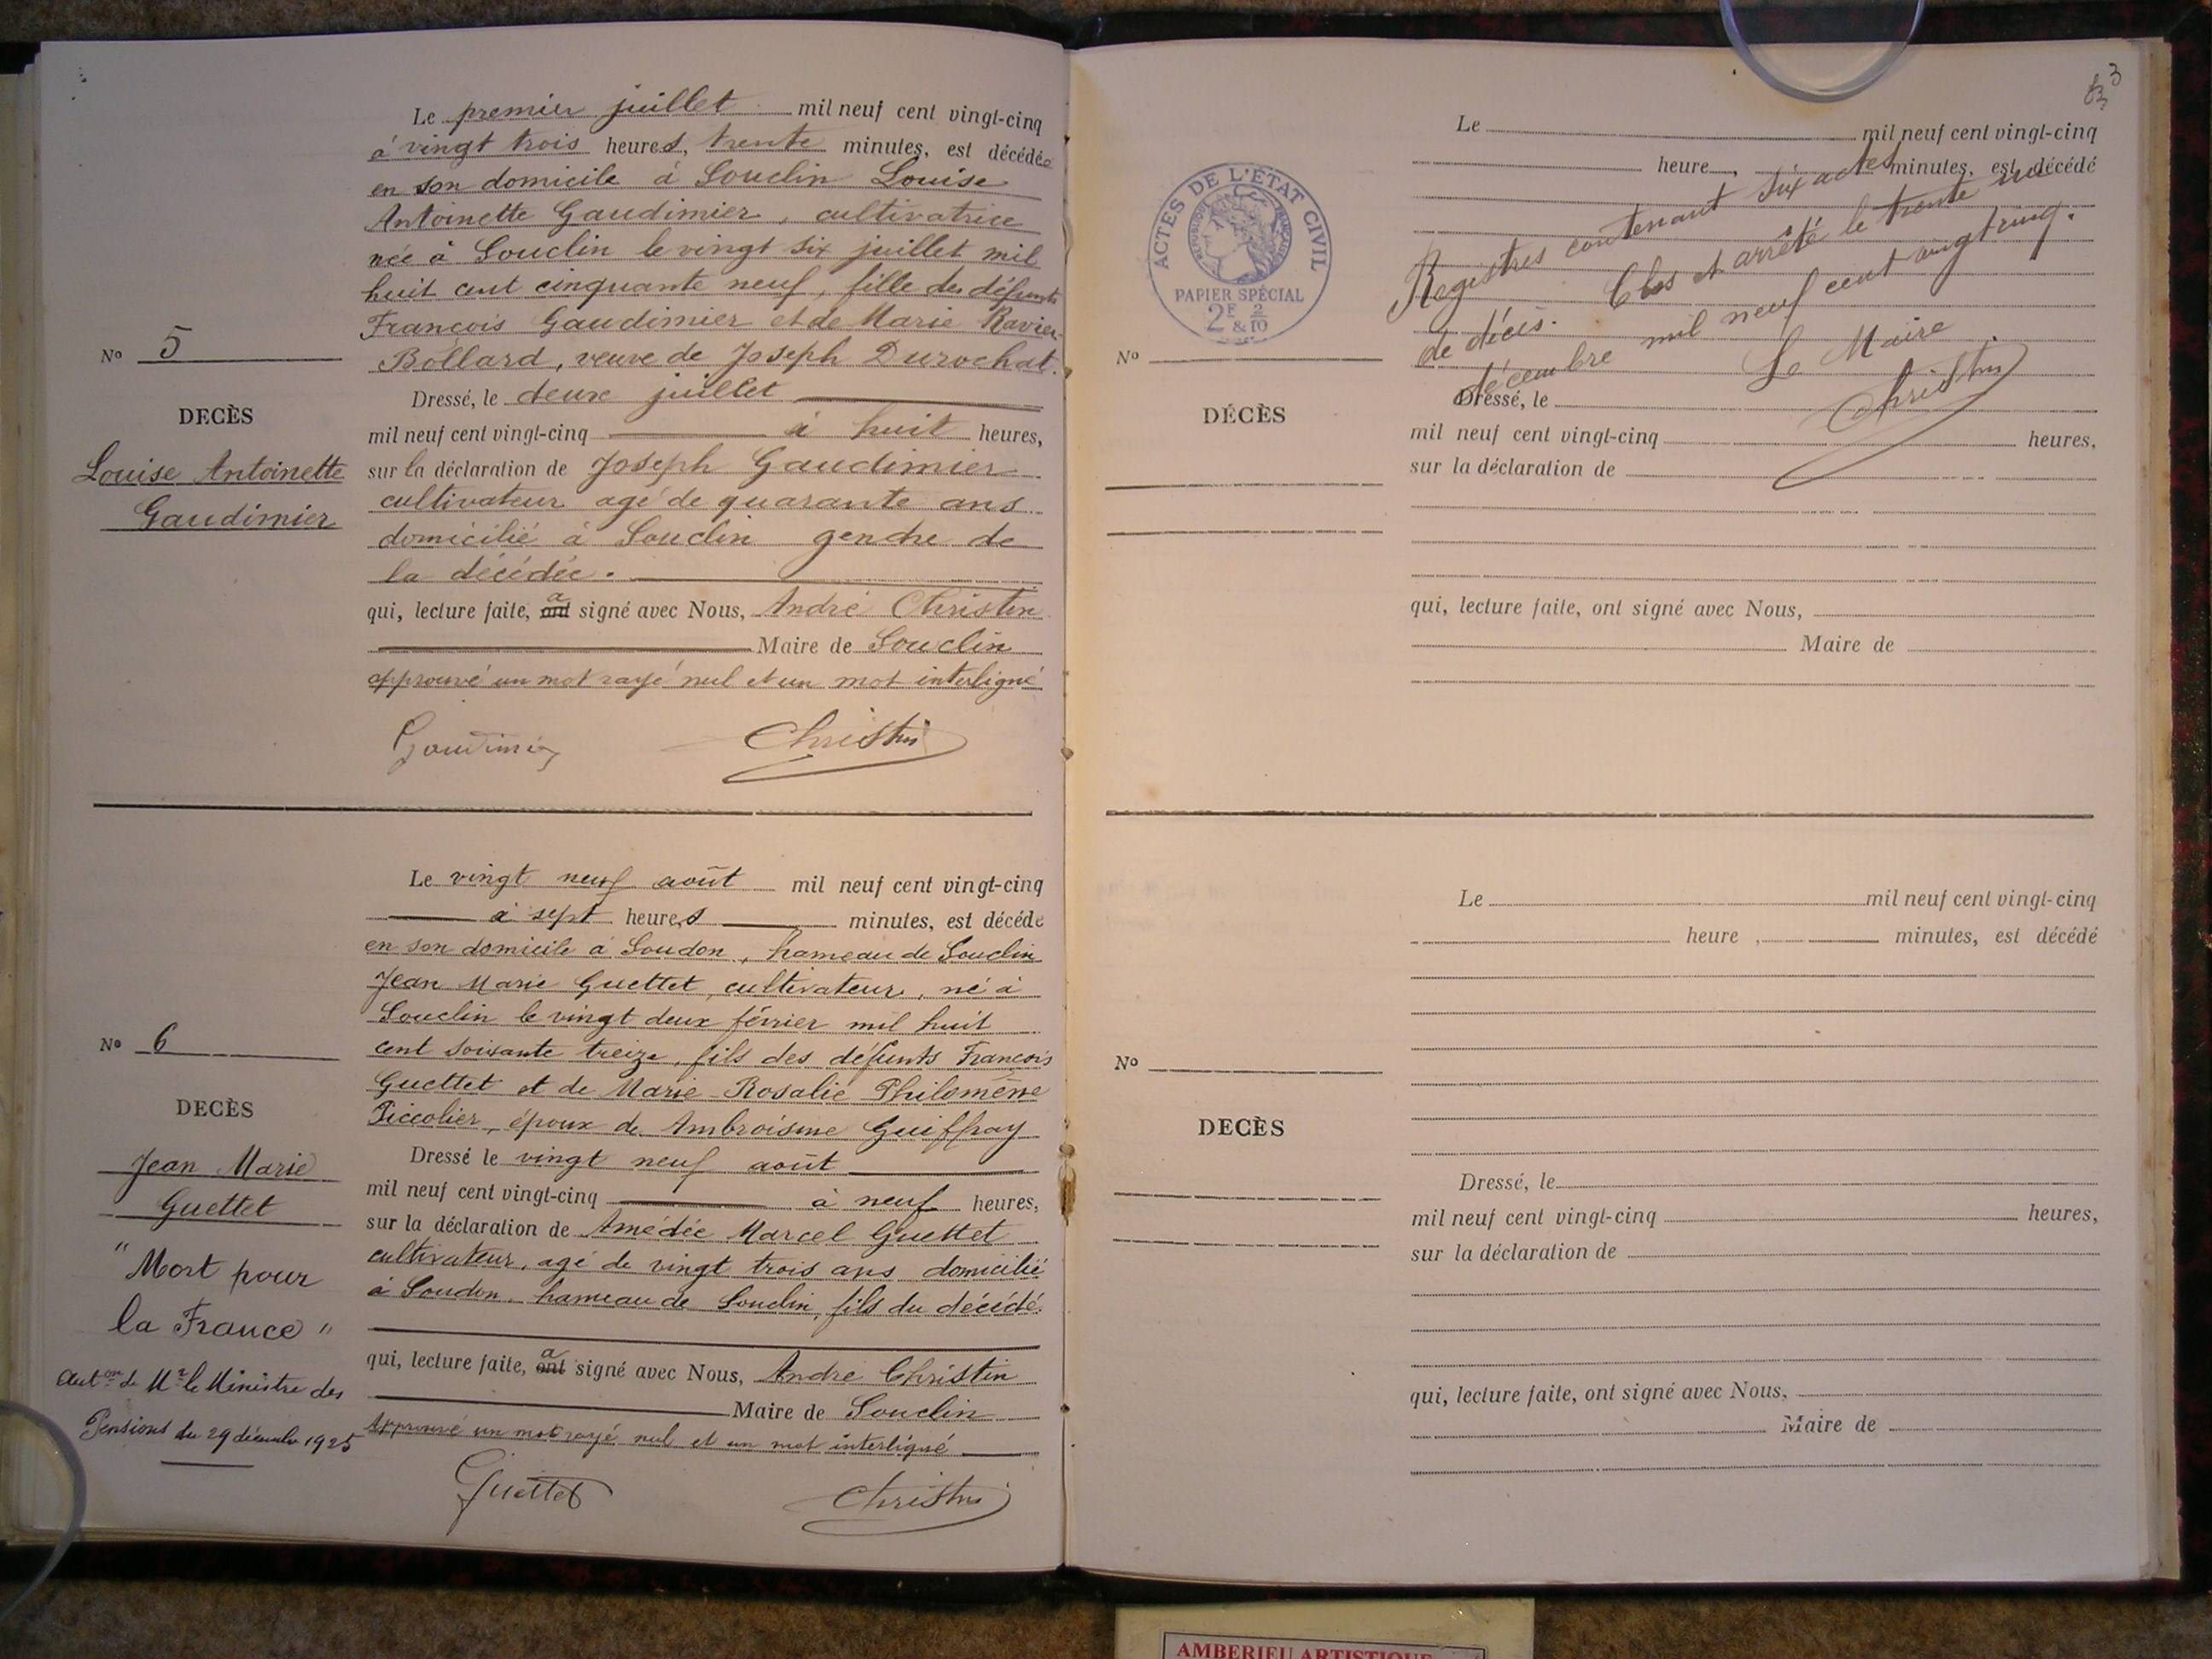 Le premier juillet mil neuf cent vingt-cinq
à vingt trois heures, trente minutes, est décédée
en son domicile à Souclin Louise
Antoinette Gaudimier, cultivatrice
née à Souclin le vingt six juillet mil
huit cent cinquante neuf, fille des défunts
François Gaudimier et de Marie Ravier-
Bollard, veuve de Joseph Durochat.
Nº 5
DECÈS
Louise Antoinette
Gaudimier
Dressé, le deux juillet
mil neuf cent vingt-cinq à huit heures,
sur la déclaration de Joseph Gaudimier
cultivateur agé de quarante ans
domicilié à Souclin gendre de
la décédée.
qui, lecture faite, ont a signé avec Nous, André Christin
Maire de Souclin
approuvé un mot rayé nul et un mot interligné
Gaudimier Christin
Le vingt neuf août mil neuf cent vingt-cinq
à sept heures minutes, est décédé
en son domicile à Soudon, hameau de Souclin
Jean Marie Guettet, cultivateur, né à
Souclin le vingt deux février mil huit
cent soixante treize, fils des défunts François
Guettet et de Marie-Rosalie Philomène
Piccolier, époux de Ambroisine Guiffray
Nº 6
DECÈS
Jean Marie
Guettet
"Mort pour
la France"
Auton de Mr le Ministre des
Pensions du 29 décembre 1925
Dressé le vingt neuf août
mil neuf cent vingt-cinq à neuf heures,
sur la déclaration de Amédée Marcel Guettet
cultivateur, agé de vingt trois ans domicilié
à Soudon, hameau de Souclin, fils du décédé.
qui, lecture faite, ont a signé avec Nous, André Christin
Maire de Souclin
Approuvé un mot rayé nul et un mot interligné
Guettet Christin
3
ACTES DE L'ÉTAT CIVIL
RÉPUBLIQUE FRANÇAISE
PAPIER SPÉCIAL
2F & 2/10
Le mil neuf cent vingt-cinq
heure, minutes, est décédé
Registres contenant six actes
de décès. Clos et arrêté le trente un
décembre mil neuf cent vingt cinq.
Le Maire
Christin
Nº
DÉCÈS
Dressé, le
mil neuf cent vingt-cinq heures,
sur la déclaration de
qui, lecture faite, ont signé avec Nous,
Maire de
Le mil neuf cent vingt-cinq
heure, minutes, est décédé
Nº
DECÈS
Dressé, le
mil neuf cent vingt-cinq heures,
sur la déclaration de
qui, lecture faite, ont signé avec Nous,
Maire de
AMBERIEU ARTISTIQUE